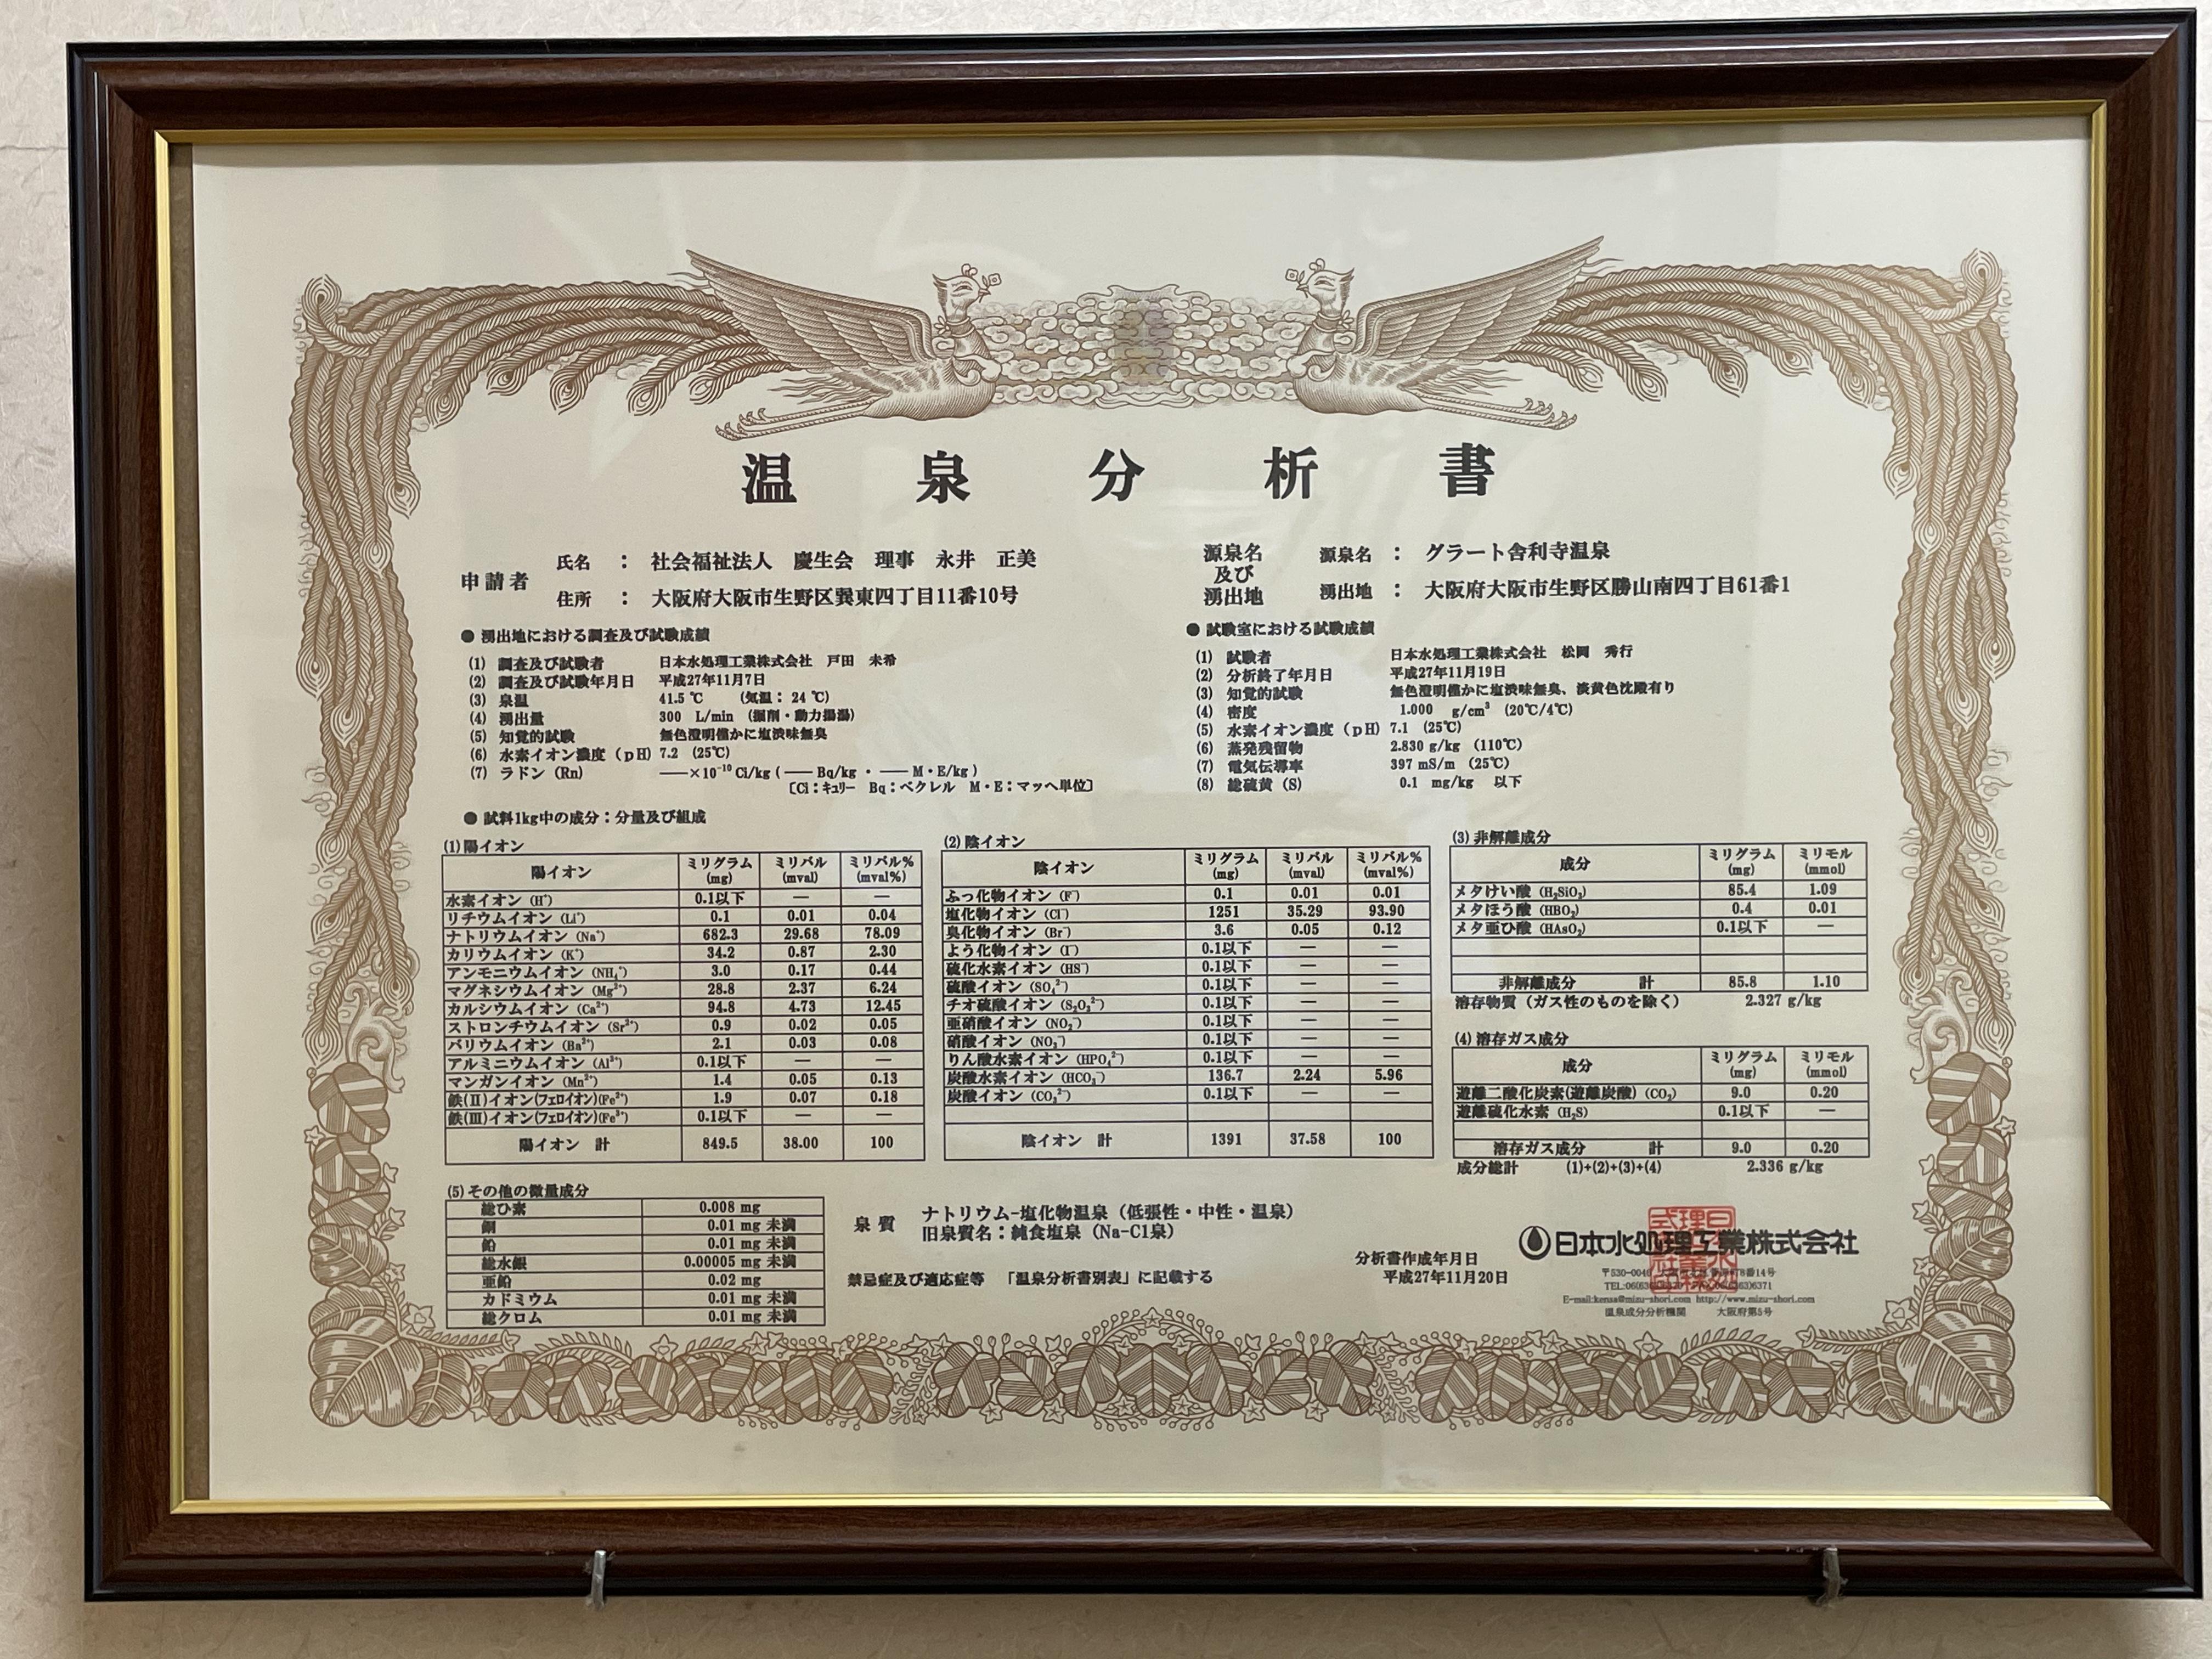 温泉分析書
申請者
氏名 ： 社会福祉法人 慶生会 理事 永井 正美
住所 ： 大阪府大阪市生野区巽東四丁目11番10号
源泉名及び湧出地
源泉名 ： グラート舎利寺温泉
湧出地 ： 大阪府大阪市生野区勝山南四丁目61番1
● 湧出地における調査及び試験成績
(1) 調査及び試験者 日本水処理工業株式会社 戸田 未希
(2) 調査及び試験年月日 平成27年11月7日
(3) 泉温 41.5 ℃ (気温： 24 ℃)
(4) 湧出量 300 L/min (掘削・動力揚湯)
(5) 知覚的試験 無色澄明僅かに塩渋味無臭
(6) 水素イオン濃度 (pH) 7.2 (25℃)
(7) ラドン (Rn) ――×10⁻¹⁰ Ci/kg ( ―― Bq/kg ・ ―― M・E/kg )
〔Ci：ｷｭﾘｰ Bq：ベクレル M・E：マッヘ単位〕
● 試験室における試験成績
(1) 試験者 日本水処理工業株式会社 松岡 秀行
(2) 分析終了年月日 平成27年11月19日
(3) 知覚的試験 無色澄明僅かに塩渋味無臭、淡黄色沈殿有り
(4) 密度 1.000 g/cm³ (20℃/4℃)
(5) 水素イオン濃度 (pH) 7.1 (25℃)
(6) 蒸発残留物 2.830 g/kg (110℃)
(7) 電気伝導率 397 mS/m (25℃)
(8) 総硫黄 (S) 0.1 mg/kg 以下
● 試料1kg中の成分：分量及び組成
(1) 陽イオン
陽イオン ミリグラム(mg) ミリバル(mval) ミリバル%(mval%)
水素イオン (H⁺) 0.1以下 ― ―
リチウムイオン (Li⁺) 0.1 0.01 0.04
ナトリウムイオン (Na⁺) 682.3 29.68 78.09
カリウムイオン (K⁺) 34.2 0.87 2.30
アンモニウムイオン (NH₄⁺) 3.0 0.17 0.44
マグネシウムイオン (Mg²⁺) 28.8 2.37 6.24
カルシウムイオン (Ca²⁺) 94.8 4.73 12.45
ストロンチウムイオン (Sr²⁺) 0.9 0.02 0.05
バリウムイオン (Ba²⁺) 2.1 0.03 0.08
アルミニウムイオン (Al³⁺) 0.1以下 ― ―
マンガンイオン (Mn²⁺) 1.4 0.05 0.13
鉄(Ⅱ)イオン(フェロイオン)(Fe²⁺) 1.9 0.07 0.18
鉄(Ⅲ)イオン(フェロイオン)(Fe³⁺) 0.1以下 ― ―
陽イオン 計 849.5 38.00 100
(2) 陰イオン
陰イオン ミリグラム(mg) ミリバル(mval) ミリバル%(mval%)
ふっ化物イオン (F⁻) 0.1 0.01 0.01
塩化物イオン (Cl⁻) 1251 35.29 93.90
臭化物イオン (Br⁻) 3.6 0.05 0.12
よう化物イオン (I⁻) 0.1以下 ― ―
硫化水素イオン (HS⁻) 0.1以下 ― ―
硫酸イオン (SO₄²⁻) 0.1以下 ― ―
チオ硫酸イオン (S₂O₃²⁻) 0.1以下 ― ―
亜硝酸イオン (NO₂⁻) 0.1以下 ― ―
硝酸イオン (NO₃⁻) 0.1以下 ― ―
りん酸水素イオン (HPO₄²⁻) 0.1以下 ― ―
炭酸水素イオン (HCO₃⁻) 136.7 2.24 5.96
炭酸イオン (CO₃²⁻) 0.1以下 ― ―
陰イオン 計 1391 37.58 100
(3) 非解離成分
成分 ミリグラム(mg) ミリモル(mmol)
メタけい酸 (H₂SiO₃) 85.4 1.09
メタほう酸 (HBO₂) 0.4 0.01
メタ亜ひ酸 (HAsO₂) 0.1以下 ―
非解離成分 計 85.8 1.10
溶存物質 (ガス性のものを除く) 2.327 g/kg
(4) 溶存ガス成分
成分 ミリグラム(mg) ミリモル(mmol)
遊離二酸化炭素(遊離炭酸) (CO₂) 9.0 0.20
遊離硫化水素 (H₂S) 0.1以下 ―
溶存ガス成分 計 9.0 0.20
成分総計 (1)+(2)+(3)+(4) 2.336 g/kg
(5) その他の微量成分
総ひ素 0.008 mg
銅 0.01 mg 未満
鉛 0.01 mg 未満
総水銀 0.00005 mg 未満
亜鉛 0.02 mg
カドミウム 0.01 mg 未満
総クロム 0.01 mg 未満
泉質 ナトリウム-塩化物温泉 (低張性・中性・温泉)
旧泉質名：純食塩泉 (Na-Cl泉)
禁忌症及び適応症等 「温泉分析書別表」に記載する
分析書作成年月日
平成27年11月20日
日本水処理工業株式会社
〒530-0046
E-mail:kensa@mizu-shori.com http://www.mizu-shori.com
温泉成分分析機関 大阪府第5号